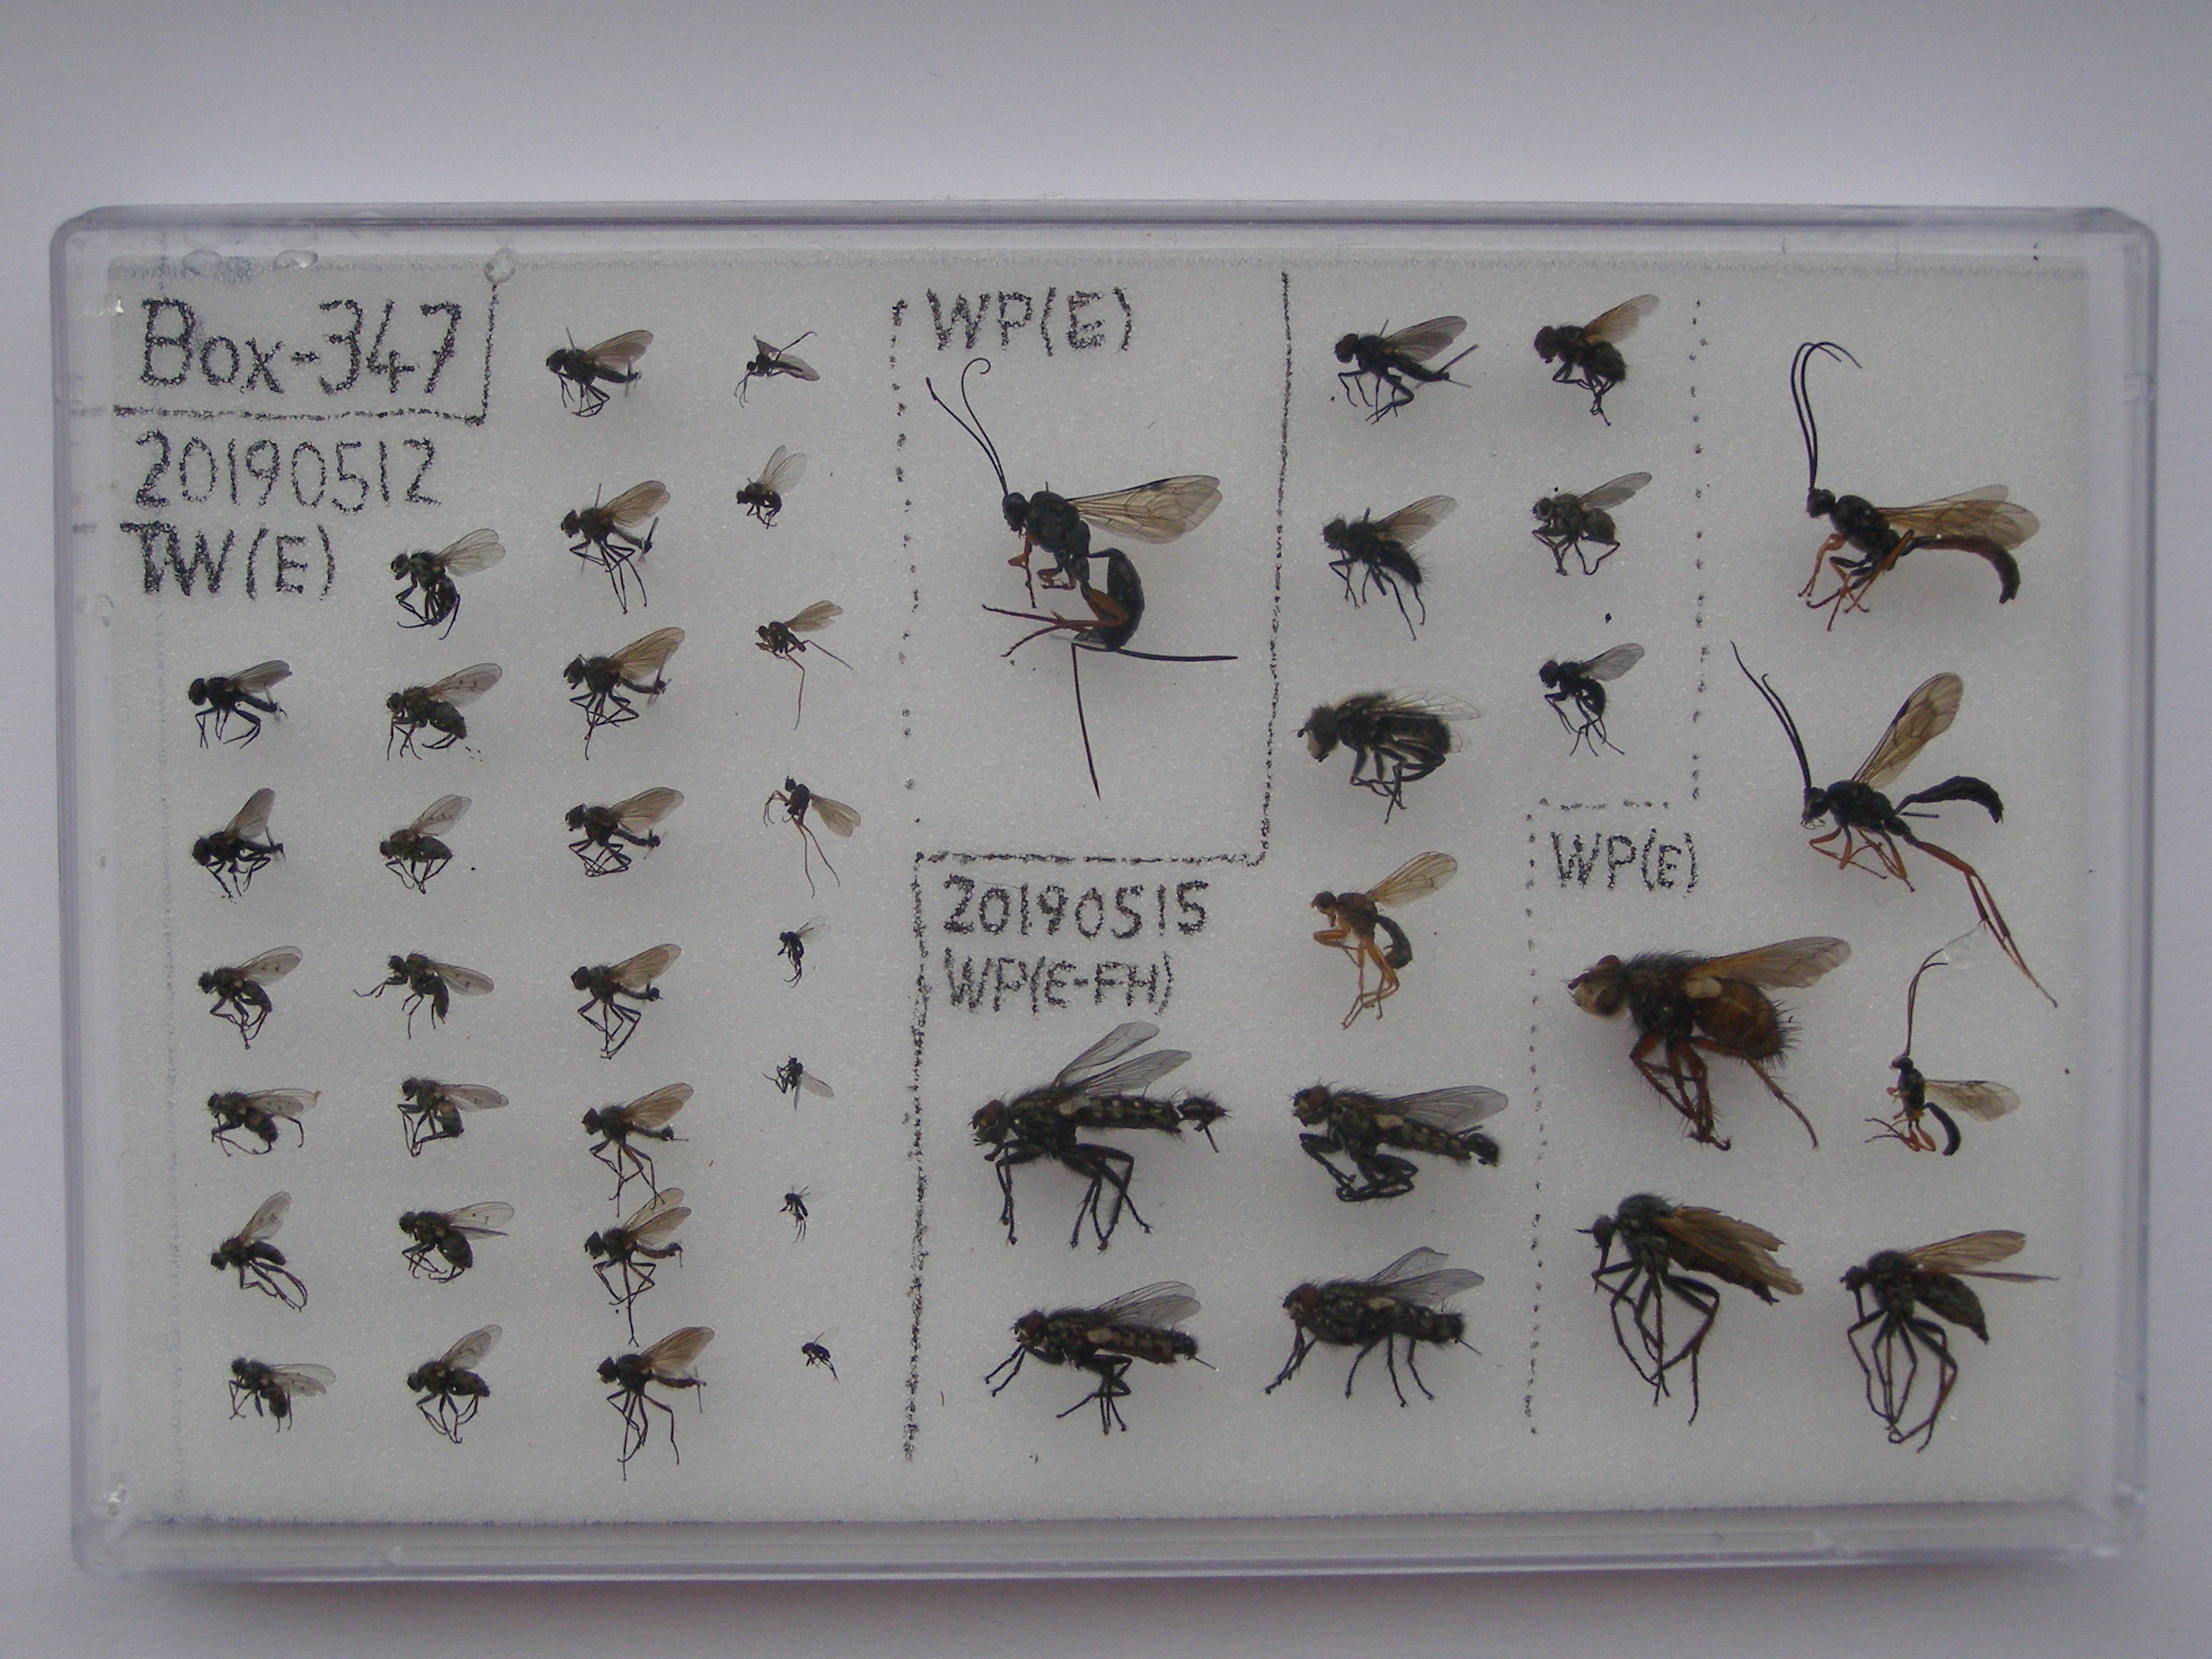 Box-347
20190512
TW(E)
WP(E)
20190515
WP(E-FH)
WP(E)